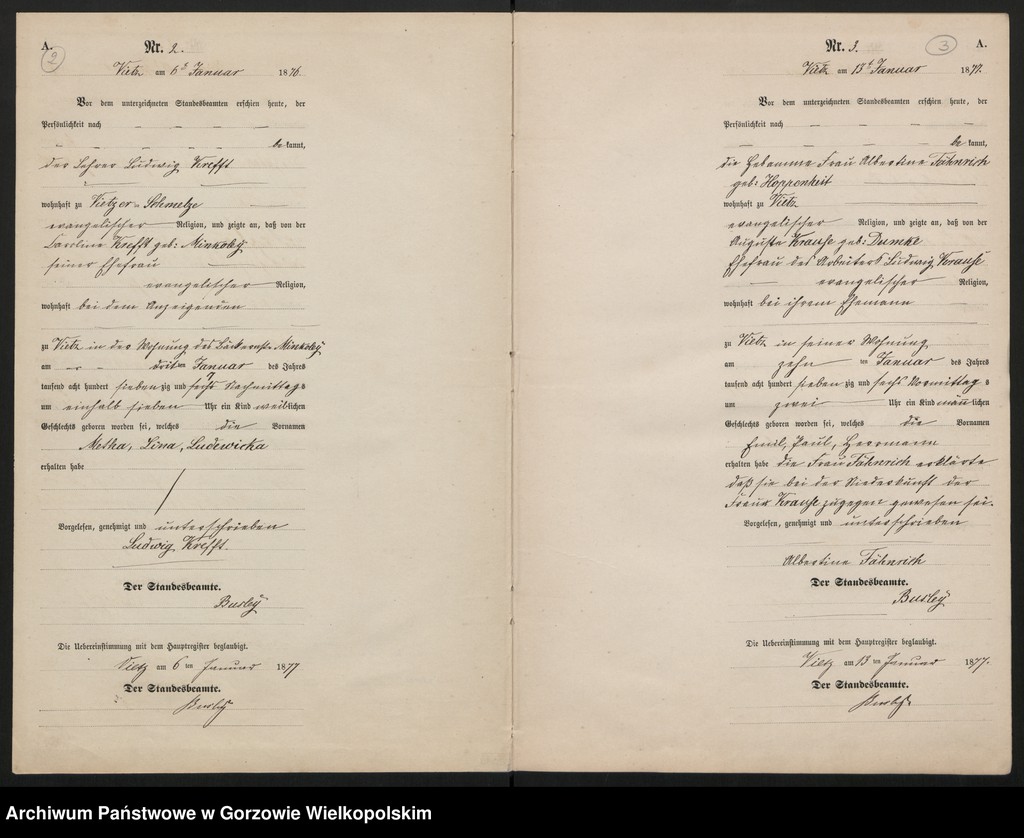 A.
2
Nr. 2.
Vietz am 6t Januar 1876.
Vor dem unterzeichneten Standesbeamten erschien heute, der
Persönlichkeit nach
be kannt,
der Lehrer Ludwig Krefft
wohnhaft zu Vietzer-Schmelze
evangelischer Religion, und zeigte an, daß von der
Caroline Krefft geb: Minkoley
seiner Ehefrau
evangelischer Religion,
wohnhaft bei dem Anzeigenden
zu Vietz in der Wohnung des Minkoley
am dritten Januar des Jahres
tausend acht hundert sieben zig und sechs Nachmittags
um einhalb sieben Uhr ein Kind weiblichen
Geschlechts geboren worden sei, welches die Vornamen
Metha, Lina, Ludewicka
erhalten habe
Vorgelesen, genehmigt und unterschrieben
Ludwig Krefft.
Der Standesbeamte.
Busley
Die Uebereinstimmung mit dem Hauptregister beglaubigt.
Vietz am 6 ten Januar 1877
Der Standesbeamte.
Busley
Nr. 3.
3
A.
Vietz am 13t Januar 1877.
Vor dem unterzeichneten Standesbeamten erschien heute, der
Persönlichkeit nach
be kannt,
die Hebamme Frau Albertine Fähnrich
geb: Hoppenheit
wohnhaft zu Vietz
evangelischer Religion, und zeigte an, daß von der
Auguste Krause geb: Dumke
Ehefrau des Arbeiters Ludwig Krause
evangelischer Religion,
wohnhaft bei ihrem Ehemann
zu Vietz in seiner Wohnung
am zehn ten Januar des Jahres
tausend acht hundert sieben zig und sechs Vormittags
um zwei Uhr ein Kind männlichen
Geschlechts geboren worden sei, welches die Vornamen
Emil, Paul, Herrmann
erhalten habe die Frau Fähnrich erklärte
daß sie bei der Niederkunft der
Frau Krause zugegen gewesen sei.
Vorgelesen, genehmigt und unterschrieben
Albertine Fähnrich
Der Standesbeamte.
Busley
Die Uebereinstimmung mit dem Hauptregister beglaubigt.
Vietz am 13 ten Januar 1877.
Der Standesbeamte.
Busley
Archiwum Państwowe w Gorzowie Wielkopolskim